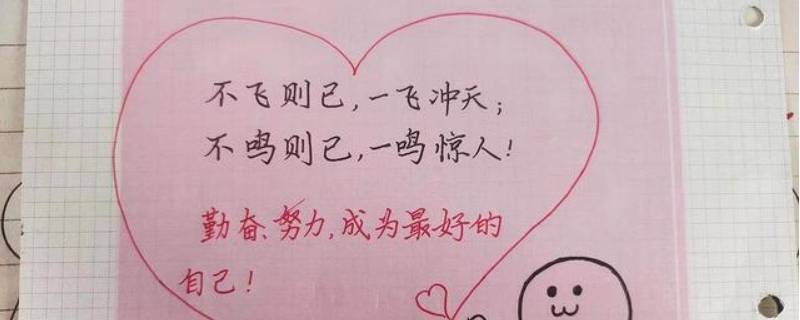 不飞则已,一飞冲天;
不鸣则已,一鸣惊人!
勤奋、努力,成为最好的
自己!